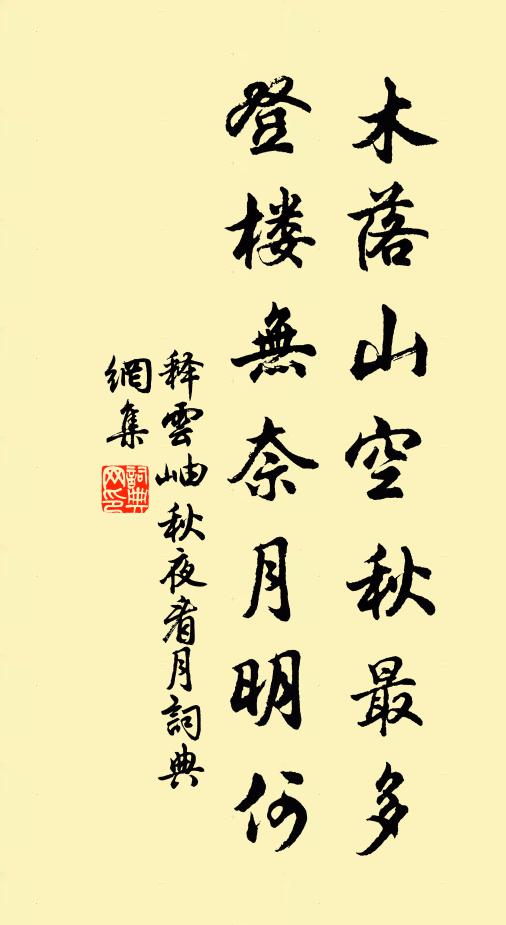 木落山空秋最多
登楼無奈月明何
释雲岫秋夜看月詞典
網集
詞典
网印